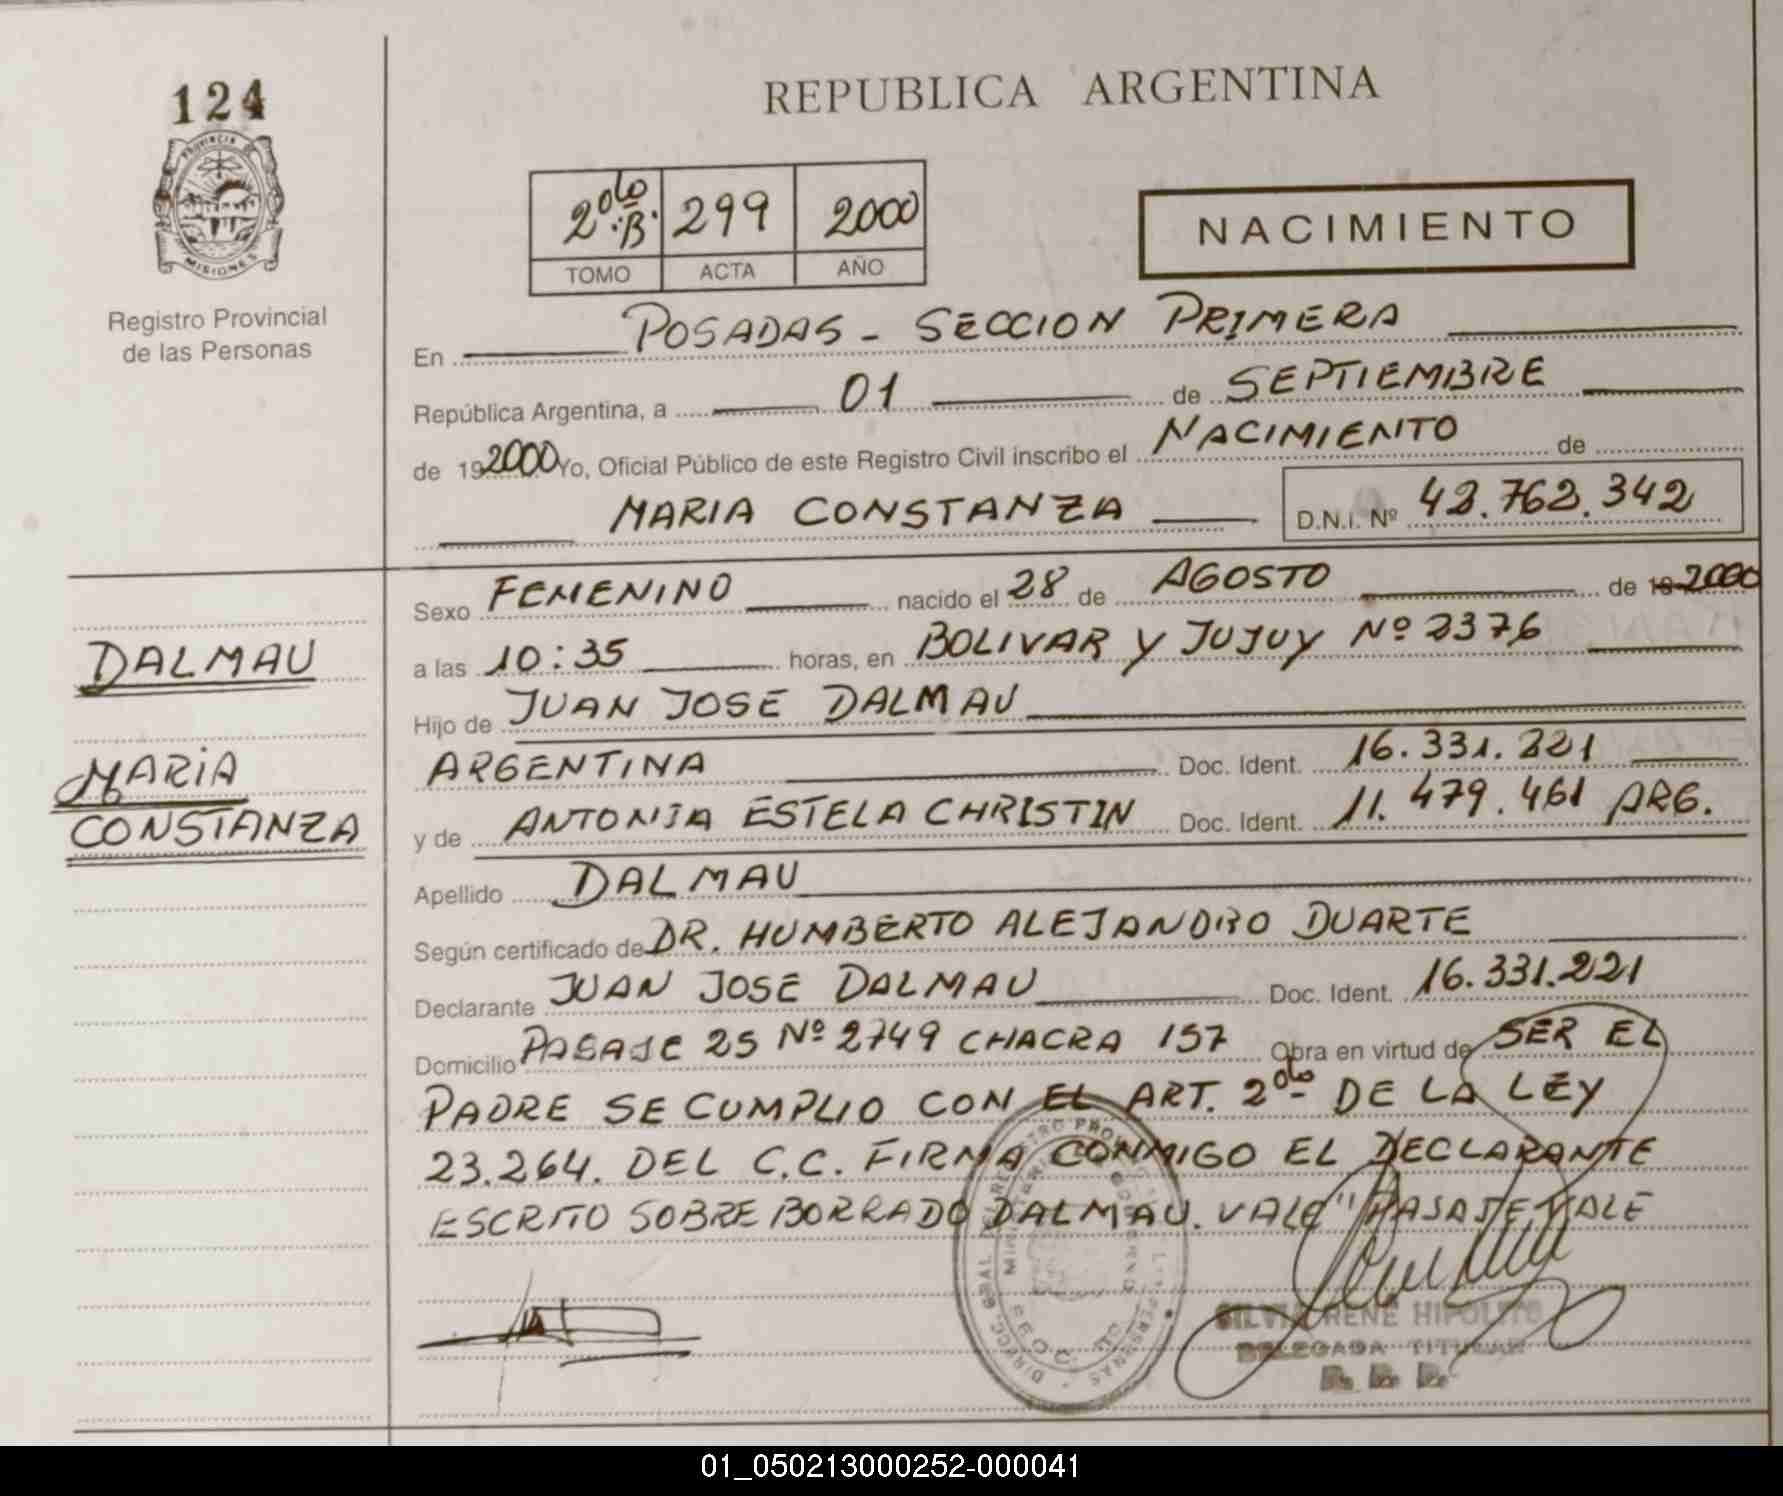 124
PROVINCIA DE
MISIONES
Registro Provincial
de las Personas
REPUBLICA ARGENTINA
2do B. 299 2000
TOMO ACTA AÑO
NACIMIENTO
En POSADAS - SECCION PRIMERA
República Argentina, a 01 de SEPTIEMBRE
de 192000 Yo, Oficial Público de este Registro Civil inscribo el NACIMIENTO de
MARIA CONSTANZA D.N.I. Nº 42.762.342
Sexo FEMENINO nacido el 28 de AGOSTO de 19 2000
DALMAU
a las 10:35 horas, en BOLIVAR Y JUJUY Nº 2376
Hijo de JUAN JOSE DALMAU
MARIA
CONSTANZA
ARGENTINA Doc. Ident. 16.331.221
y de ANTONIA ESTELA CHRISTIN Doc. Ident. 11.479.461 ARG.
Apellido DALMAU
Según certificado de DR. HUMBERTO ALEJANDRO DUARTE
Declarante JUAN JOSE DALMAU Doc. Ident. 16.331.221
Domicilio PASAJE 25 Nº 2749 CHACRA 157 Obra en virtud de SER EL
PADRE SE CUMPLIO CON EL ART. 2do DE LA LEY
23.264. DEL C.C. FIRMA CONMIGO EL DECLARANTE
ESCRITO SOBRE BORRADO DALMAU. VALE "PASAJE, VALE
SILVIA RENE HIPOLITO
DELEGADA TITULAR
01_050213000252-000041